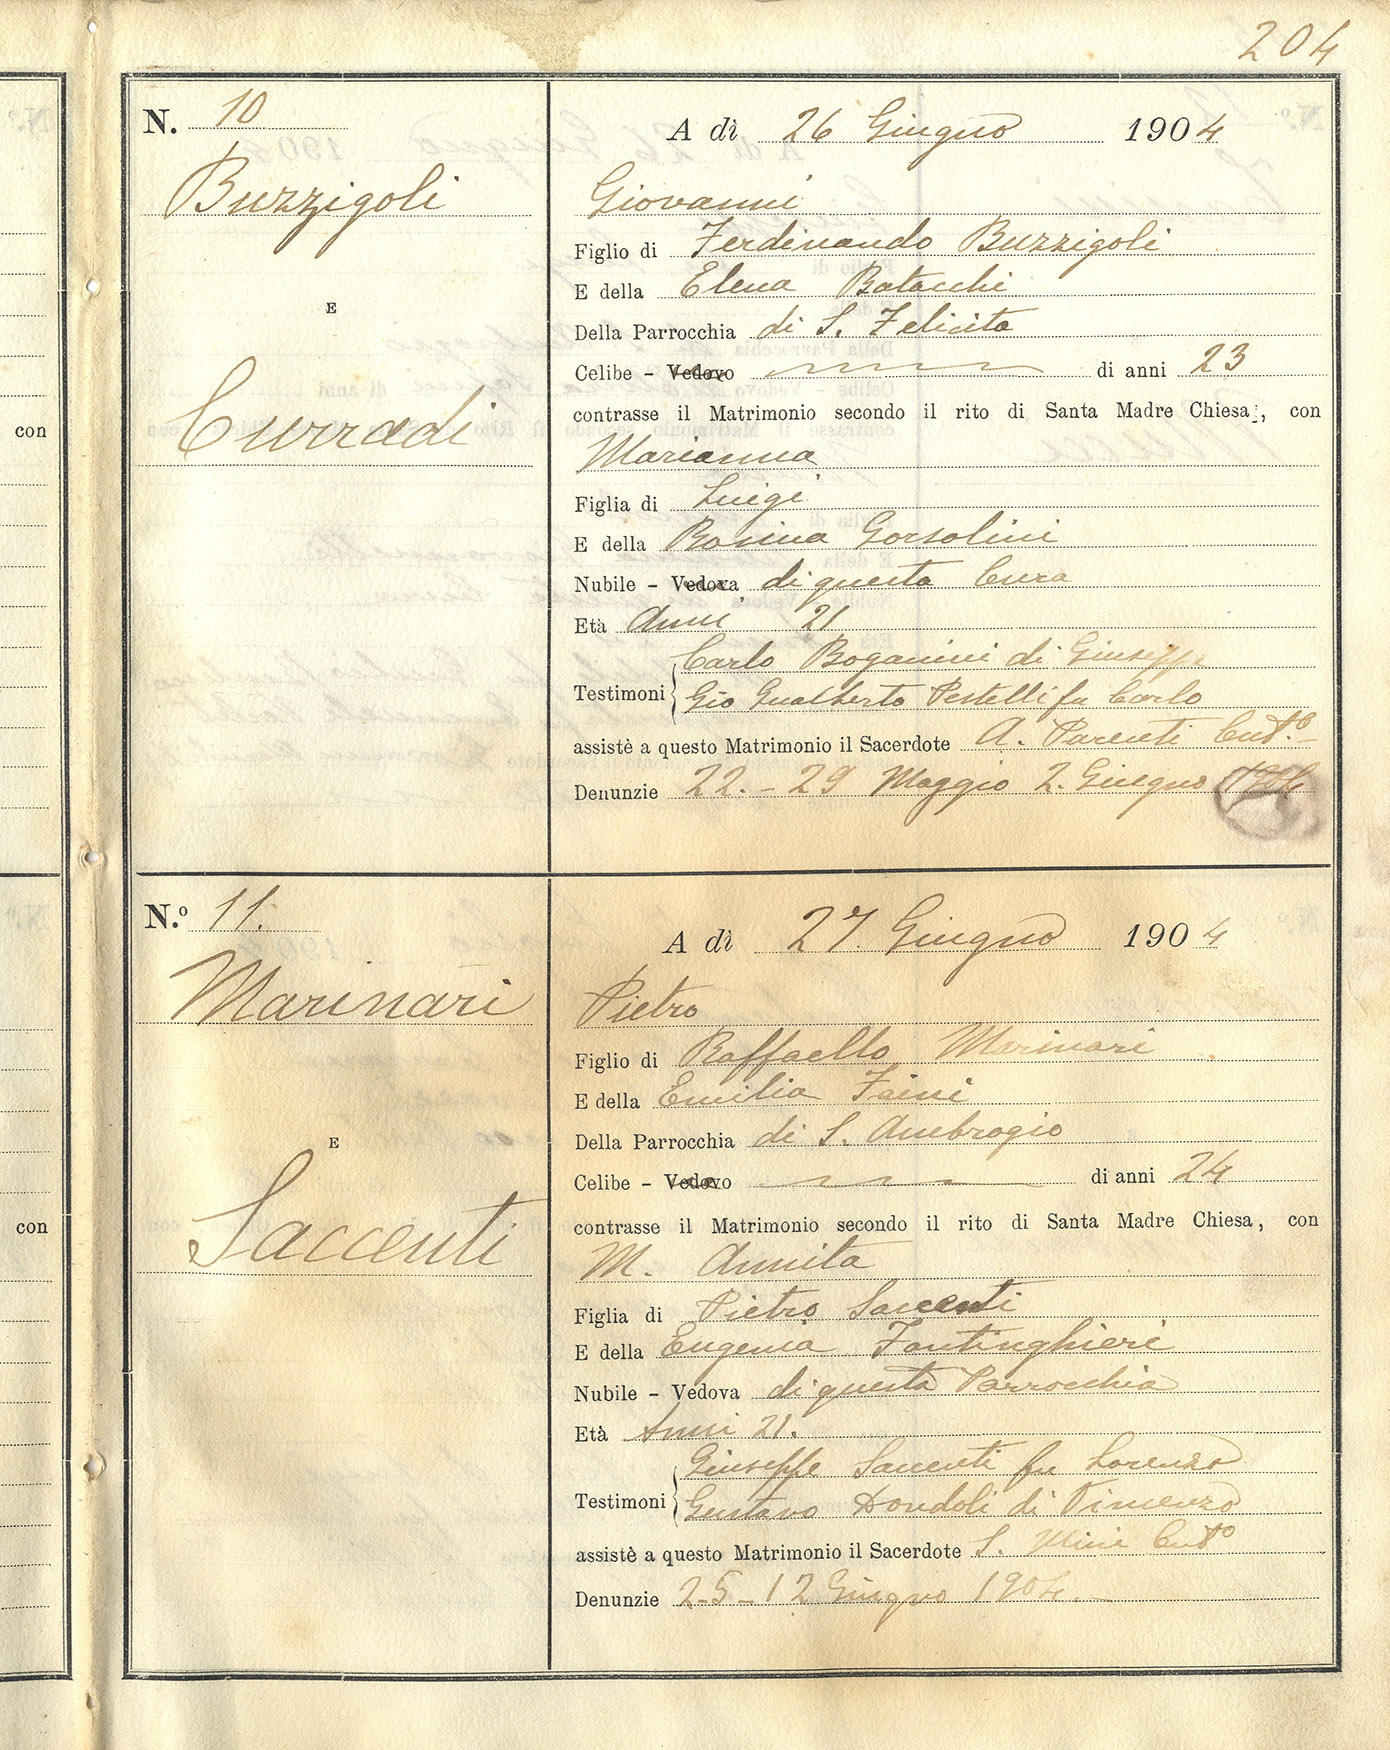 204
N. 10
Buzzigoli
E
Curradi
A dì 26 Giugno 1904
Giovanni
Figlio di Ferdinando Buzzigoli
E della Elena Batacchi
Della Parrocchia di S. Felicita
Celibe - Vedovo di anni 23
contrasse il Matrimonio secondo il rito di Santa Madre Chiesa, con
Marianna
Figlia di Luigi
E della Rosina Gorsolini
Nubile - Vedova di questa Cura
Età Anni 21
Testimoni Carlo Boganini di Giuseppe
Gio Gualberto Pestelli fu Carlo
assistè a questo Matrimonio il Sacerdote A. Parenti Cut.º
Denunzie 22. - 29 Maggio 2. Giugno 1904
con
N.º 11.
Marinari
E
Saccenti
A dì 27. Giugno 1904
Pietro
Figlio di Raffaello Marinari
E della Emilia Faini
Della Parrocchia di S. Ambrogio
Celibe - Vedovo di anni 24
contrasse il Matrimonio secondo il rito di Santa Madre Chiesa, con
M. Annita
Figlia di Pietro Saccenti
E della Eugenia Fantinghieri
Nubile - Vedova di questa Parrocchia
Età Anni 21.
Testimoni Giuseppe Saccenti fu Lorenzo
Gustavo Dondoli di Vincenzo
assistè a questo Matrimonio il Sacerdote S. Mini Cutº
Denunzie 2-5-12 Giugno 1904.
con